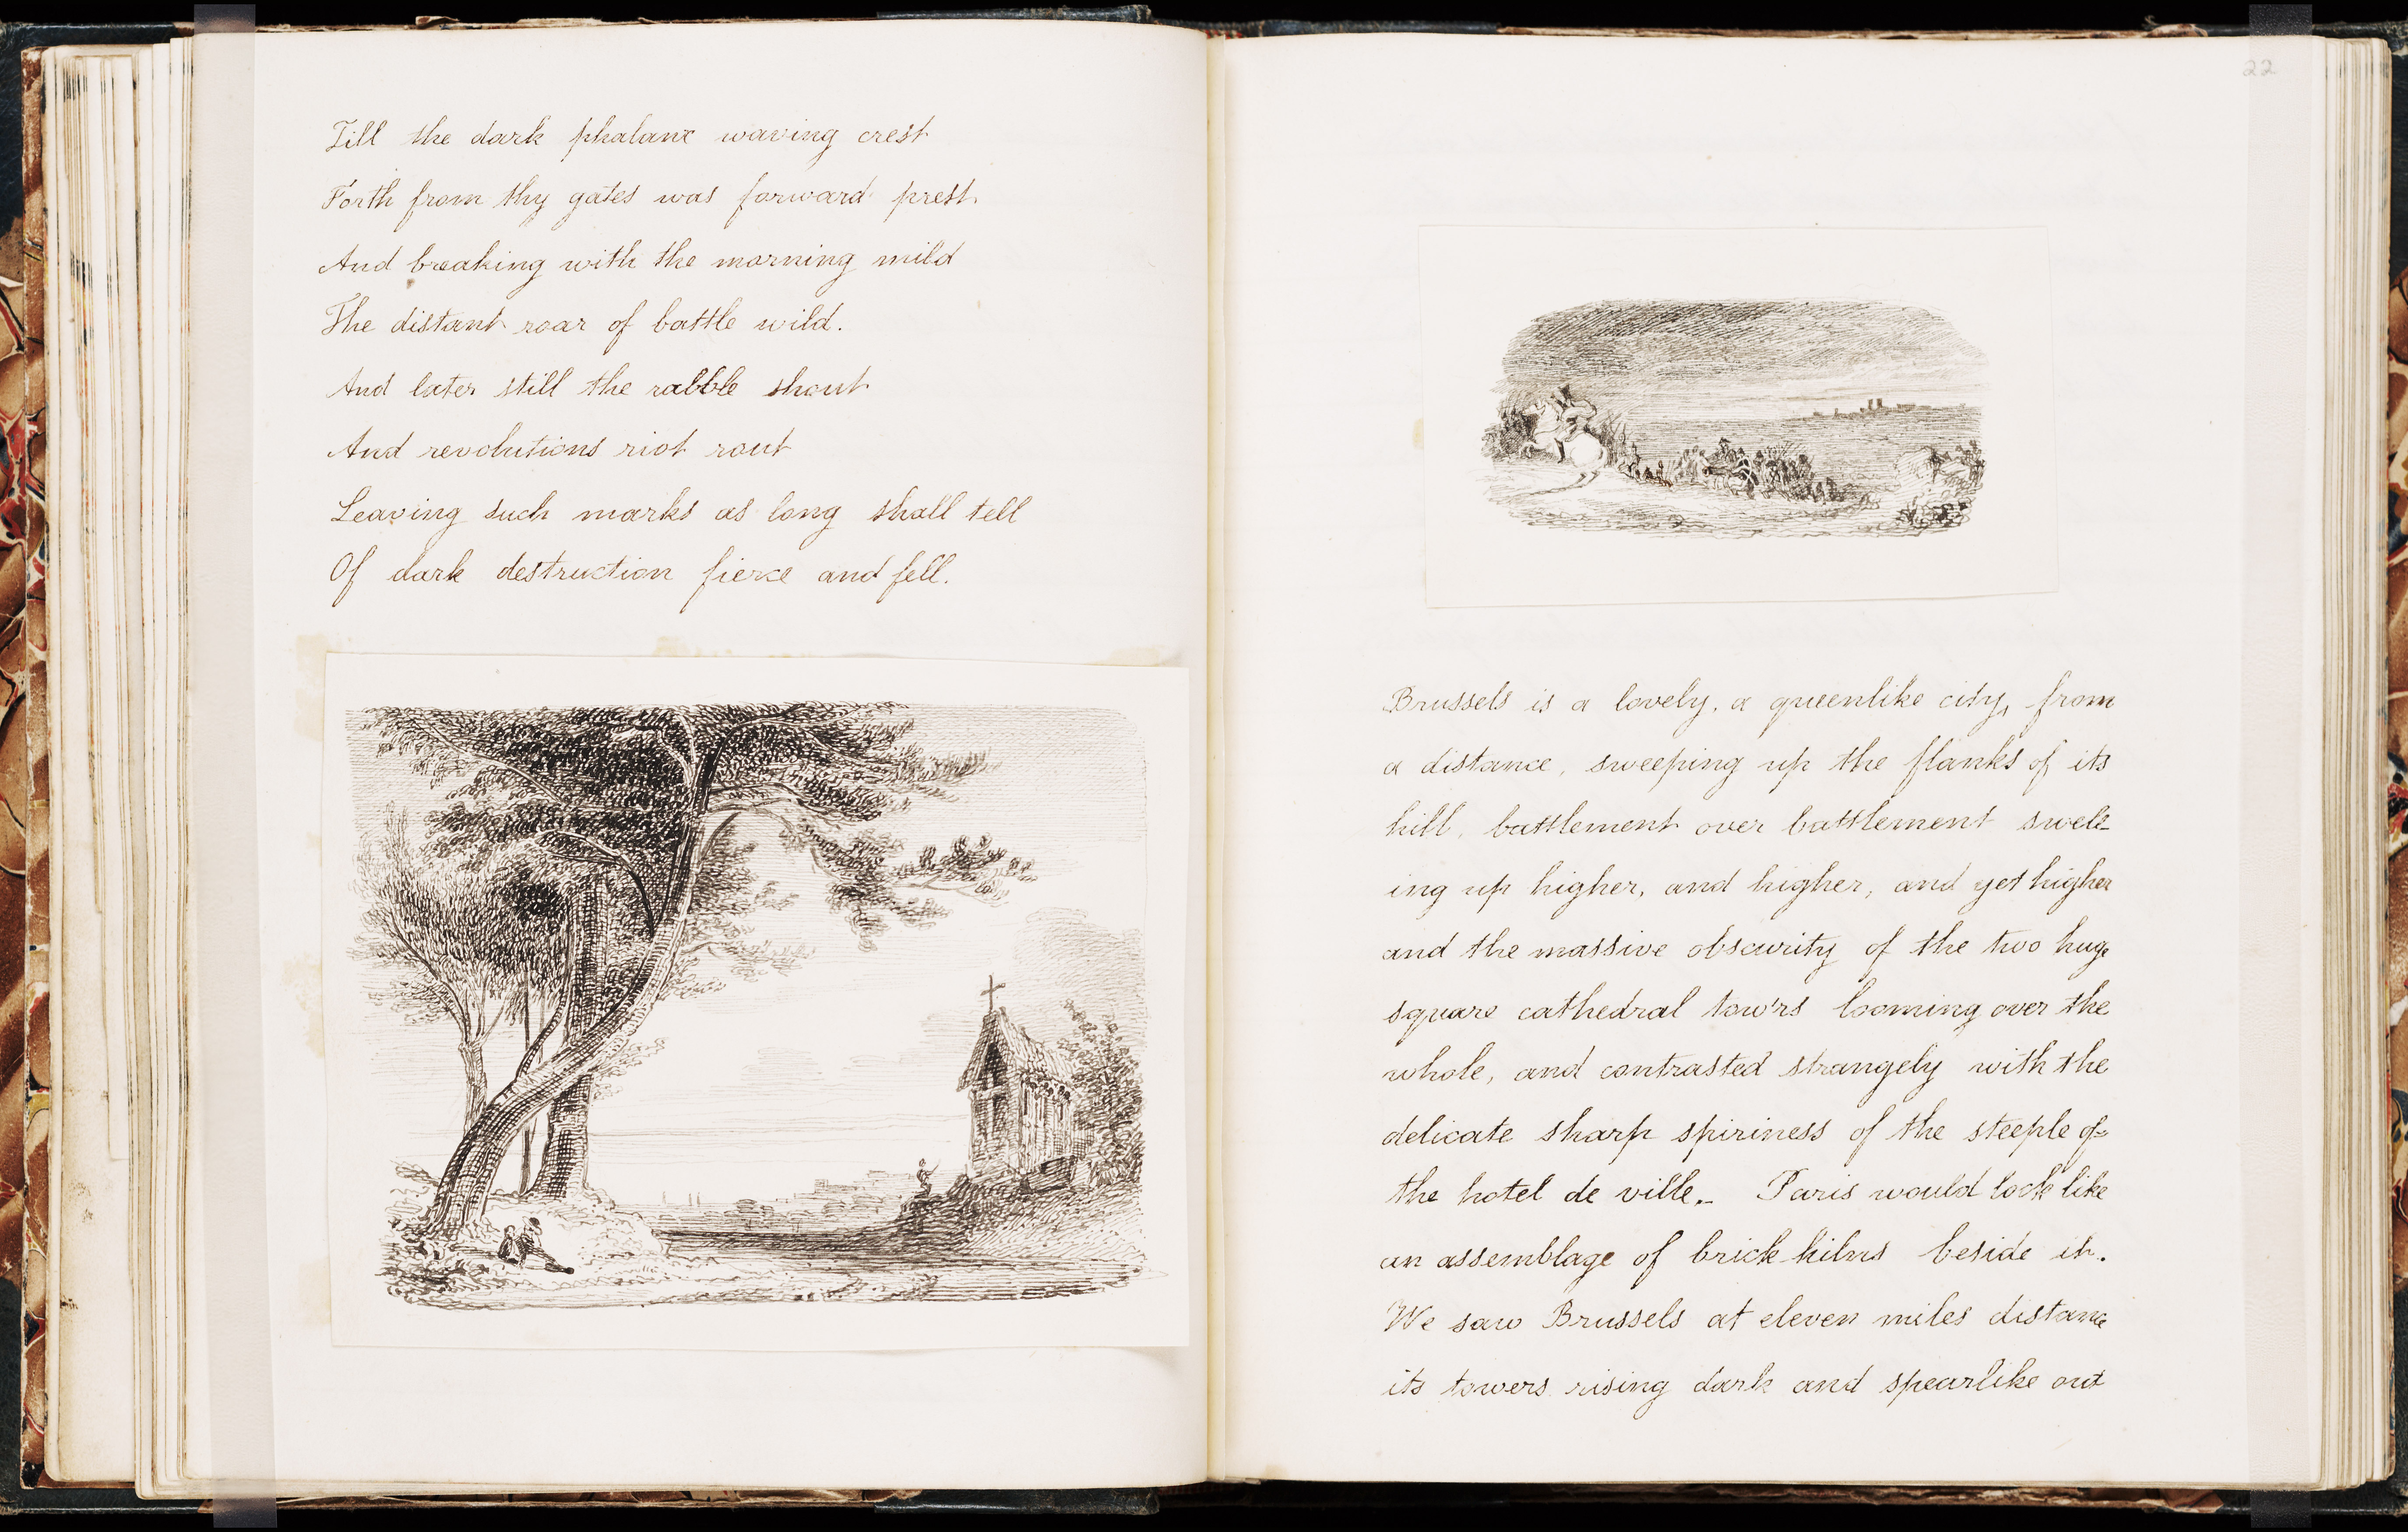 Till the dark phalanx waving crest
Forth from thy gates was forward prest.
And breaking with the morning mild
The distant roar of battle wild.
And later still the rabble shout
And revolutions riot rout
Leaving such marks as long shall tell
Of dark destruction fierce and fell.
22
Brussels is a lovely, a queenlike city, from
a distance, sweeping up the flanks of its
hill, battlement over battlement swell-
ing up higher, and higher, and yet higher
and the massive obscurity of the two huge
square cathedral tow'rs looming over the
whole, and contrasted strangely with the
delicate sharp spiriness of the steeple of
the hotel de ville. Paris would look like
an assemblage of brick kilns beside it.
We saw Brussels at eleven miles distance
its towers rising dark and spearlike out